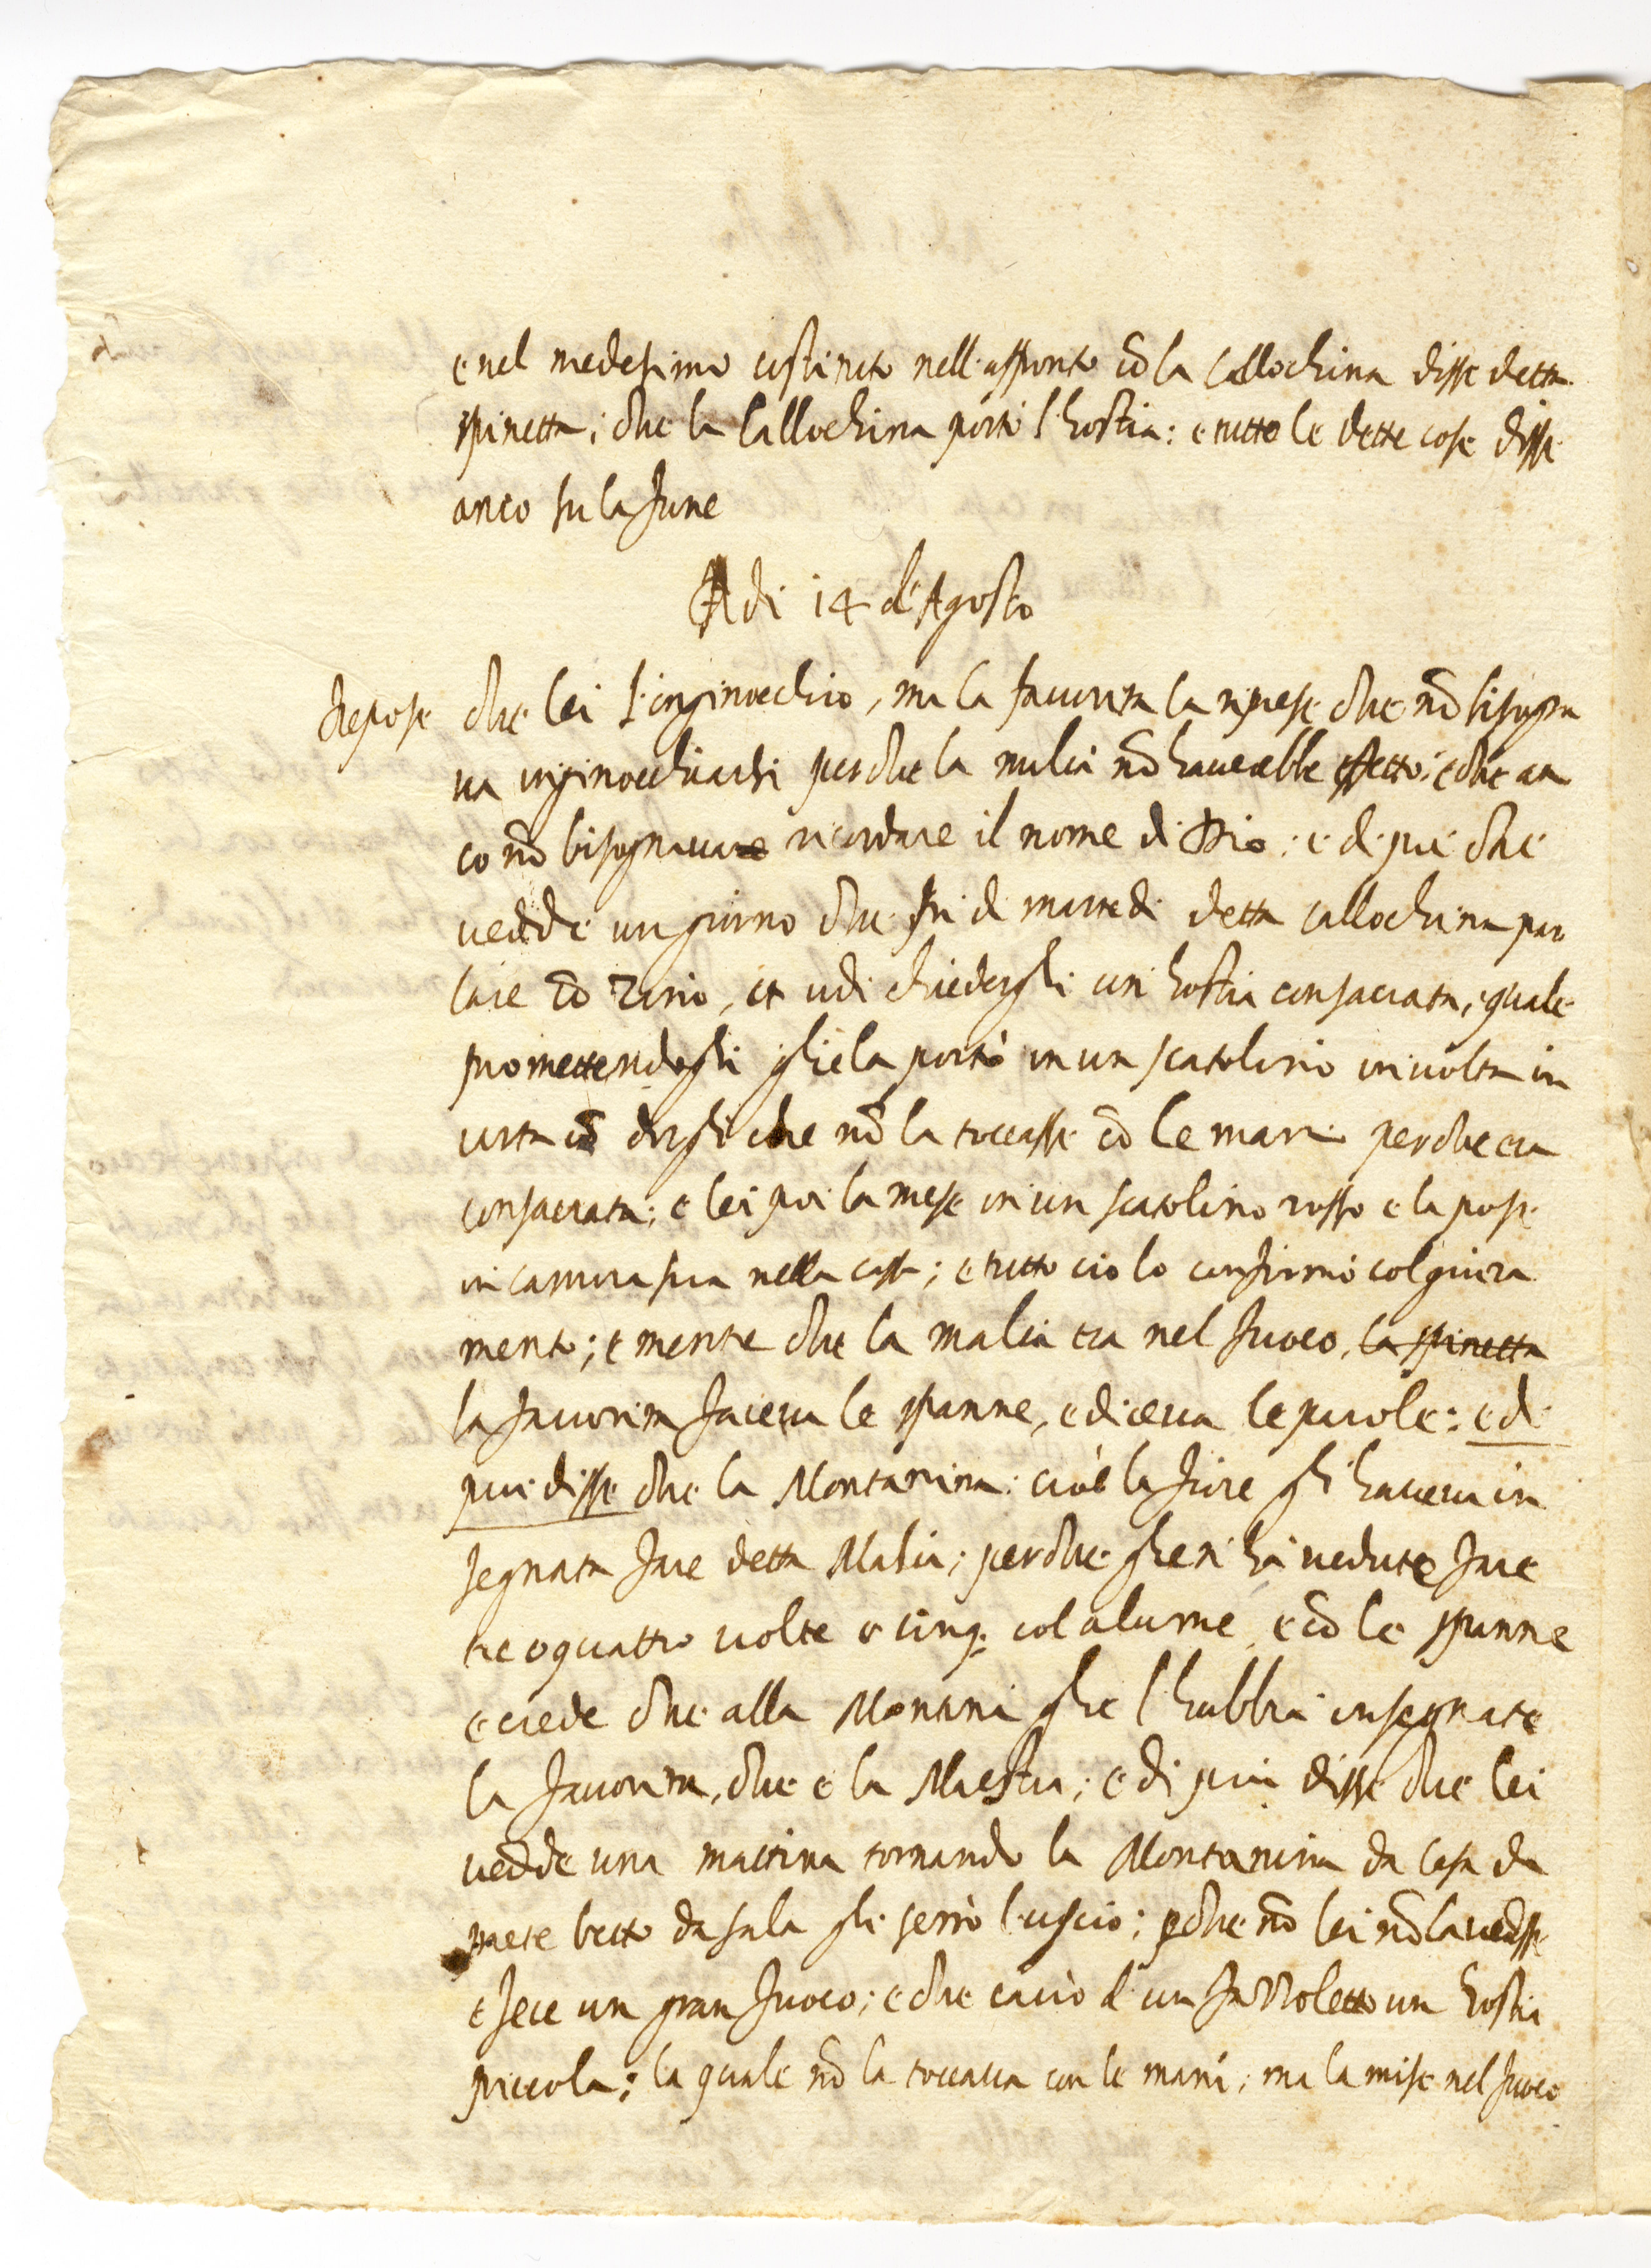 e nel medesimo costituto nell'affronto cō la Callochina disse detta
spinetta; che la Callochina portò l'hostia: e tutte le dette cose disse
anco su la fune
A di 14 d'Agosto
depose che lei s'inginocchio, ma la favorita la riprese che nō bisogna
va inginocchiarsi perche la malia nō haverebbe effetto; e che an
co nō bisognava ricordare il nome di Dio: e di piu che
vedde un giorno che fu di martedi detta Callochina par
lare cō Zirio, et udi chiedergli un hostia consacrata, e quale
promettendogli gliela portò in un scatolino involta in
carta cō dirgli che nō la toccasse cō le mani perche era
consacrata; e lei poi la mese in un scatolino rosso e la pose
in camera sua nella cassa; e tutto cio lo confirmò col giura
mento; e mentre che la malia era nel fuoco, la spinetta
la favorita faceva le spanne, e diceva le parole: e di
piu disse che la Montanina: cioè la fiore gli haveva in
segnata fare detta Malia; perche glien' hà vedute fare
tre o quattro volte o cinq. col alume e cō le spanne
e crede che alla Montani. glie l'habbia insegnate
la favorita, che e la Maestra; e di piu disse che lei
vedde una mattina tornando la Montanina da casa da
prete betto da sala gli serrò l'uscio; pche nō lei nō la vedesse
e fece un gran fuoco; e che cavò d'un fazzoletto un hostia
piccola; la quale nō la toccava con le mani, ma la mise nel fuoco